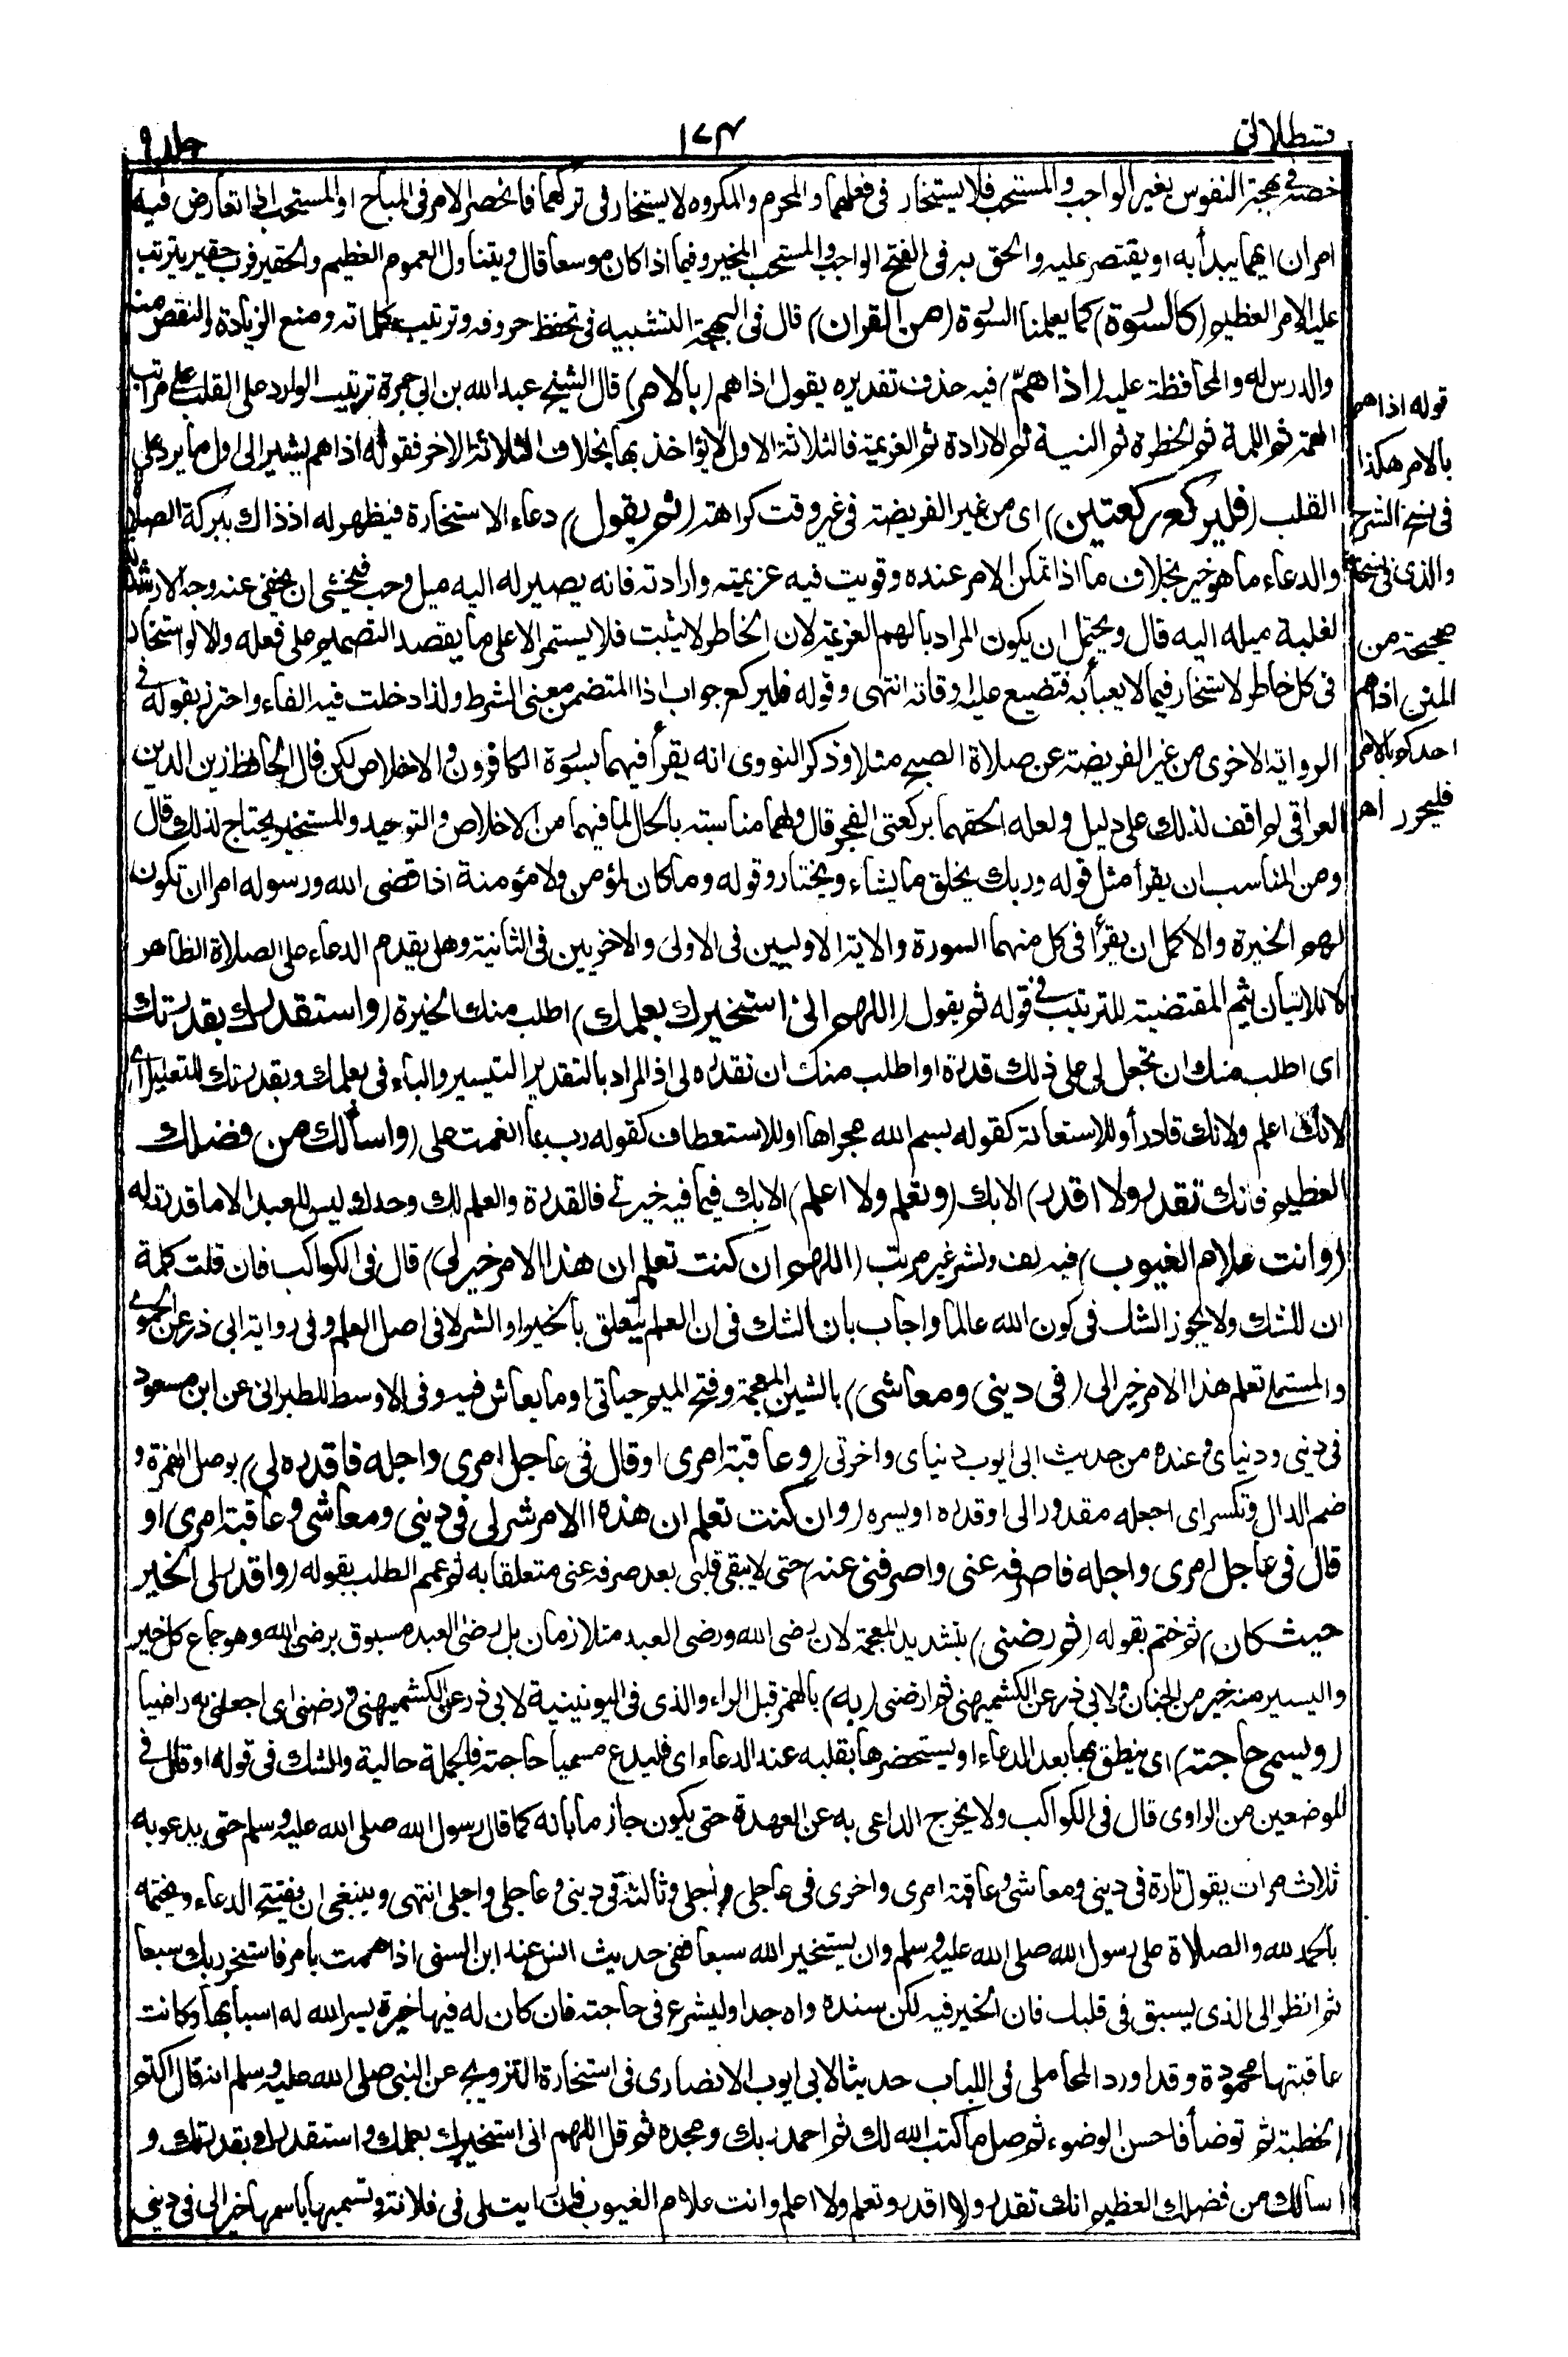 قسطلانى
١٧٤
جلد ٩
خصه فى بهجة النفوس بغير الواجب والمستحب فلا يستخار فى فعلهما والمحرم والمكروه لا يستخار فى تركهما فانحصر الامر فى المباح او المستحب اذا تعارض فيه
امران ايهما يبدأ به او يقتصر عليه والحق به فى الفتح الواجب والمستحب المخير وفيما اذا كان موسعا قال ويتناول العموم العظيم والحقير فرب حقير يترتب
عليه الامر العظيم (كالسورة) كما يعلمنا السورة (من القران) قال فى البهجة التشبيه فى تحفظ حروفه وترتيب كلماته ومنع الزيادة والنقص منه
والدرس له والمحافظة عليه (اذا همّ) فيه حذف تقديره يقول اذا هم (بالامر) قال الشيخ عبد الله بن ابى جمرة ترتيب الوارد على القلب على مراتب
الهمة ثم اللمة ثم الخطرة ثم النية ثم الارادة ثم العزيمة فالثلاثة الاول لا يؤاخذ بها بخلاف الثلاثة الاخر فقوله اذا هم يشير الى اول ما يرد على
القلب (فليركع ركعتين) اى من غير الفريضة فى غير وقت كراهة (ثم يقول) دعاء الاستخارة فيظهر له اذ ذاك ببركة الصلاة
والدعاء ما هو خير بخلاف ما اذا تمكن الامر عنده وقويت فيه عزيمته وارادته فانه يصير له اليه ميل وحب فيخشى ان يخفى عنه وجه الارشدية
لغلبة ميله اليه قال ويحتمل ان يكون المراد بالهم العزيمة لان الخاطر لا يثبت فلا يستمر الا على ما يقصد التصميم على فعله والا لو استخار
فى كل خاطر لاستخار فيما لا يعبأ به فتضيع عليه اوقاته انتهى وقوله فليركع جواب اذا المتضمن معنى الشرط ولذا دخلت فيه الفاء واحترز بقوله فى
الرواية الاخرى من غير الفريضة عن صلاة الصبح مثلا وذكر النووى انه يقرأ فيهما بسورة الكافرون والاخلاص لكن قال الحافظ زين الدين
العراقى لم اقف لذلك على دليل ولعله الحقهما بركعتى الفجر قال ولهما مناسبته بالحال لما فيهما من الاخلاص والتوحيد والمستخير يحتاج لذلك قال
ومن المناسب ان يقرأ مثل قوله وربك يخلق ما يشاء ويختار وقوله وما كان لمؤمن ولا مؤمنة اذا قضى الله ورسوله امرا ان تكون
لهم الخيرة والاكمل ان يقرأ فى كل منهما السورة والاية الاوليين فى الاولى والاخريين فى الثانية وهل يقدم الدعاء على الصلاة الظاهر
لا للاتيان بثم المقتضية للترتيب فى قوله ثم يقول (اللهم انى استخيرك بعلمك) اطلب منك الخيرة (واستقدرك بقدرتك
اى اطلب منك ان تجعل لى على ذلك قدرة او اطلب منك ان تقدره لى اذ المراد بالتقدير التيسير والباء فى بعلمك وبقدرتك للتعليل اى
لانك اعلم ولانك قادر أو للاستعانة كقوله بسم الله مجراها او للاستعطاف كقوله رب بما انعمت على (واسألك من فضلك
العظيم فانك تقدر ولا اقدر) الا بك (وتعلم ولا اعلم) الا بك فيما فيه خير لى فالقدرة والعلم لك وحدك ليس للعبد الا ما قدرته له
(وانت علام الغيوب) فيه لف ونشر غير مرتب (اللهم ان كنت تعلم ان هذا الامر خير لى) قال فى الكواكب فان قلت كلمة
ان للشك ولا يجوز الشك فى كون الله عالما واجاب بان الشك فى ان العلم يتعلق بالخير او الشر لا فى اصل العلم وفى رواية ابى ذر عن الحموى
والمستملى تعلم هذا الامر خيرا لى (فى دينى ومعاشى) بالشين المعجمة وفتح الميم حياتى او ما يعاش فيه وفى الاوسط للطبرانى عن ابن مسعود
فى دينى ودنياى وعنده من حديث ابى ايوب دنياى واخرتى (وعاقبة امرى او قال فى عاجل امرى واجله فاقدره لى) بوصل الهمزة و
ضم الدال وتكسر اى اجعله مقدورا لى او قدره او يسره (وان كنت تعلم ان هذا الامر شر لى فى دينى ومعاشى وعاقبة امرى او
قال فى عاجل امرى واجله فاصرفه عنى واصرفنى عنه) حتى لا يبقى قلبى بعد صرفه عنى متعلقا به ثم عمم الطلب بقوله (واقدر لى الخير
حيث كان) ثم ختم بقوله (ثم رضنى) بتشديد المعجمة لان رضى الله ورضى العبد متلازمان بل رضى العبد مسبوق برضى الله وهو جماع كل خير
واليسير منه خير من الجنان ولابى ذر عن الكشميهنى ثم ارضنى (به) بالهمز قبل الراء والذى فى اليونينية لابى ذر عن الكشميهنى ورضنى اى اجعلنى به راضيا
(ويسمى حاجته) اى ينطق بها بعد الدعاء او يستحضرها بقلبه عند الدعاء اى فليدع مسميا حاجته فالجملة حالية والشك فى قوله او قال فى
الموضعين من الراوى قال فى الكواكب ولا يخرج الداعى به عن العهدة حتى يكون جازما بانه كما قال رسول الله صلى الله عليه وسلم حتى يدعو به
ثلاث مرات يقول تارة فى دينى ومعاشى وعاقبة امرى واخرى فى عاجلى واجلى وثالثة فى دينى وعاجلى واجلى انتهى وينبغى ان يفتتح الدعاء ويختمه
بالحمد لله والصلاة على رسول الله صلى الله عليه وسلم وان يستخير الله سبعا ففى حديث انس عند ابن السنى اذا هممت بامر فاستخر ربك سبعا
ثم انظر الى الذى يسبق فى قلبك فان الخير فيه لكن سنده واه جدا وليشرع فى حاجته فان كان له فيها خيرة يسر الله له اسبابها وكانت
عاقبتها محمودة وقد اورد المحاملى فى اللباب حديثا لابى ايوب الانصارى فى استخارة التزويج عن النبى صلى الله عليه وسلم انه قال اكتم
الخطبة ثم توضأ فاحسن الوضوء ثم صل ما كتب الله لك ثم احمد ربك ومجده ثم قل اللهم انى استخيرك بعلمك واستقدرك بقدرتك و
اسألك من فضلك العظيم انك تقدر ولا اقدر وتعلم ولا اعلم وانت علام الغيوب فان رايت لى فى فلانة وتسميها باسمها خيرا لى فى دينى
قوله اذا هم
بالامر هكذا
فى نسخ الشرح
والذى فى نسخة
صحيحة من
المتن اذا هم
احدكم بالامر
فليحرر اهـ